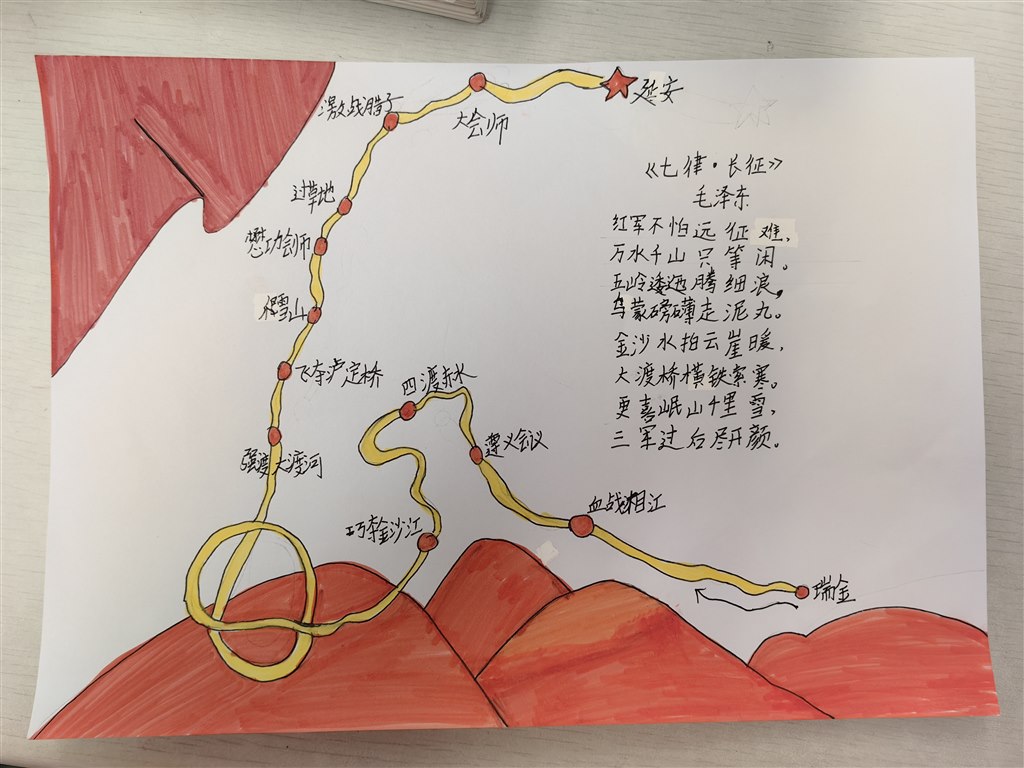 延安
大会师
激战腊子
过草地
懋功会师
爬雪山
飞夺泸定桥
强渡大渡河
四渡赤水
遵义会议
巧金沙江
血战湘江
瑞金
《七律·长征》
毛泽东
红军不怕远征难，
万水千山只等闲。
五岭逶迤腾细浪，
乌蒙磅礴走泥丸。
金沙水拍云崖暖，
大渡桥横铁索寒。
更喜岷山千里雪，
三军过后尽开颜。